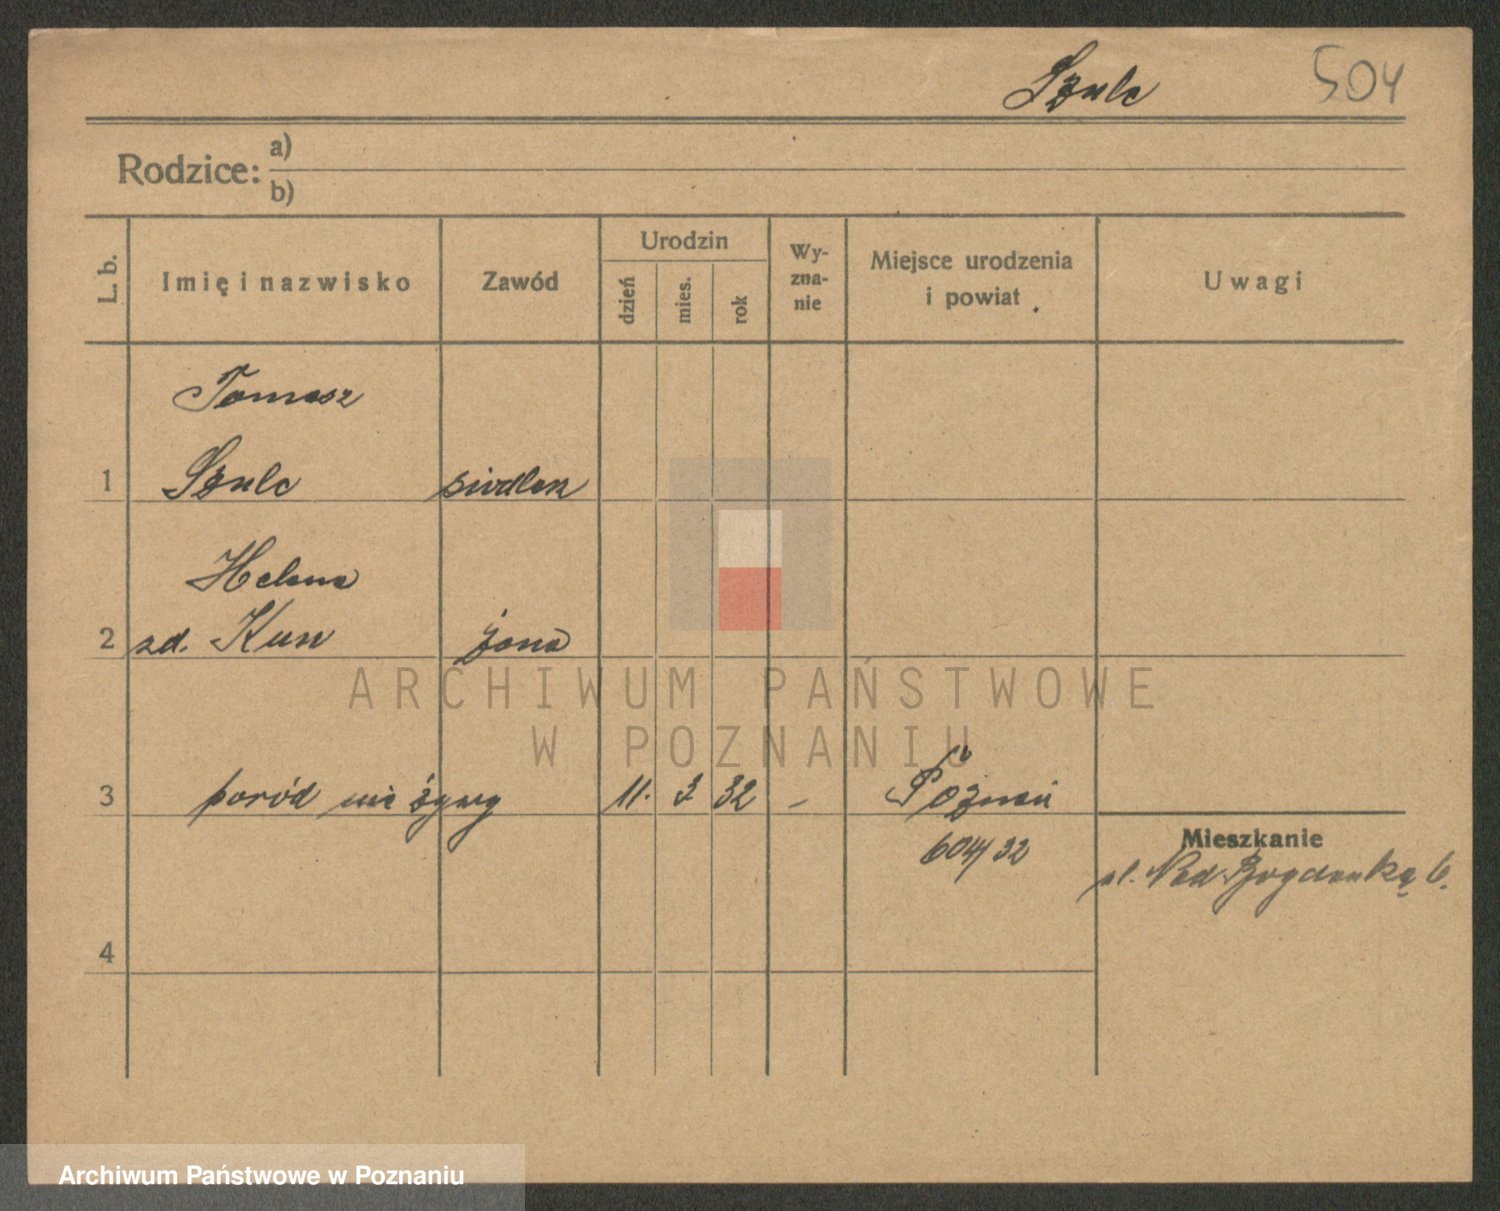 Szulc 504
Rodzice: a)
b)
L. b. Imię i nazwisko Zawód Urodzin dzień mies. rok Wy-zna-nie Miejsce urodzenia i powiat Uwagi
Tomasz
1 Szulc siodlarz
Helena
2 zd. Kun żona
3 poród nie żywy 11. 3 32 – Poznań
604/32
Mieszkanie
ul. Nad Bogdanką 6.
4
ARCHIWUM PAŃSTWOWE
W POZNANIU
Archiwum Państwowe w Poznaniu